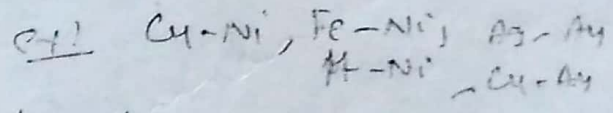 ex! Cu-Ni, Fe-Ni, Ag-Au
Pt-Ni, Cu-Au